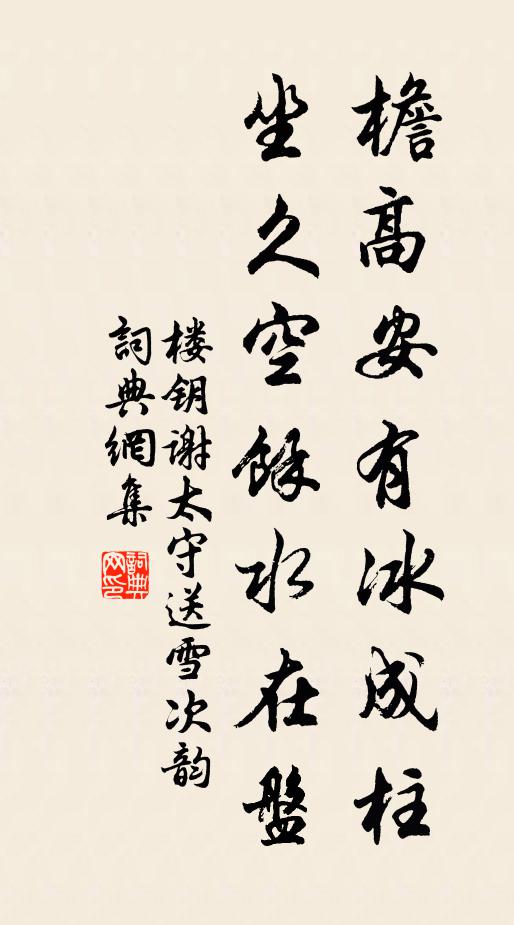 檐高安有冰成柱
坐久空餘水在盤
楼钥谢太守送雪次韵
詞典網集
詞典网印